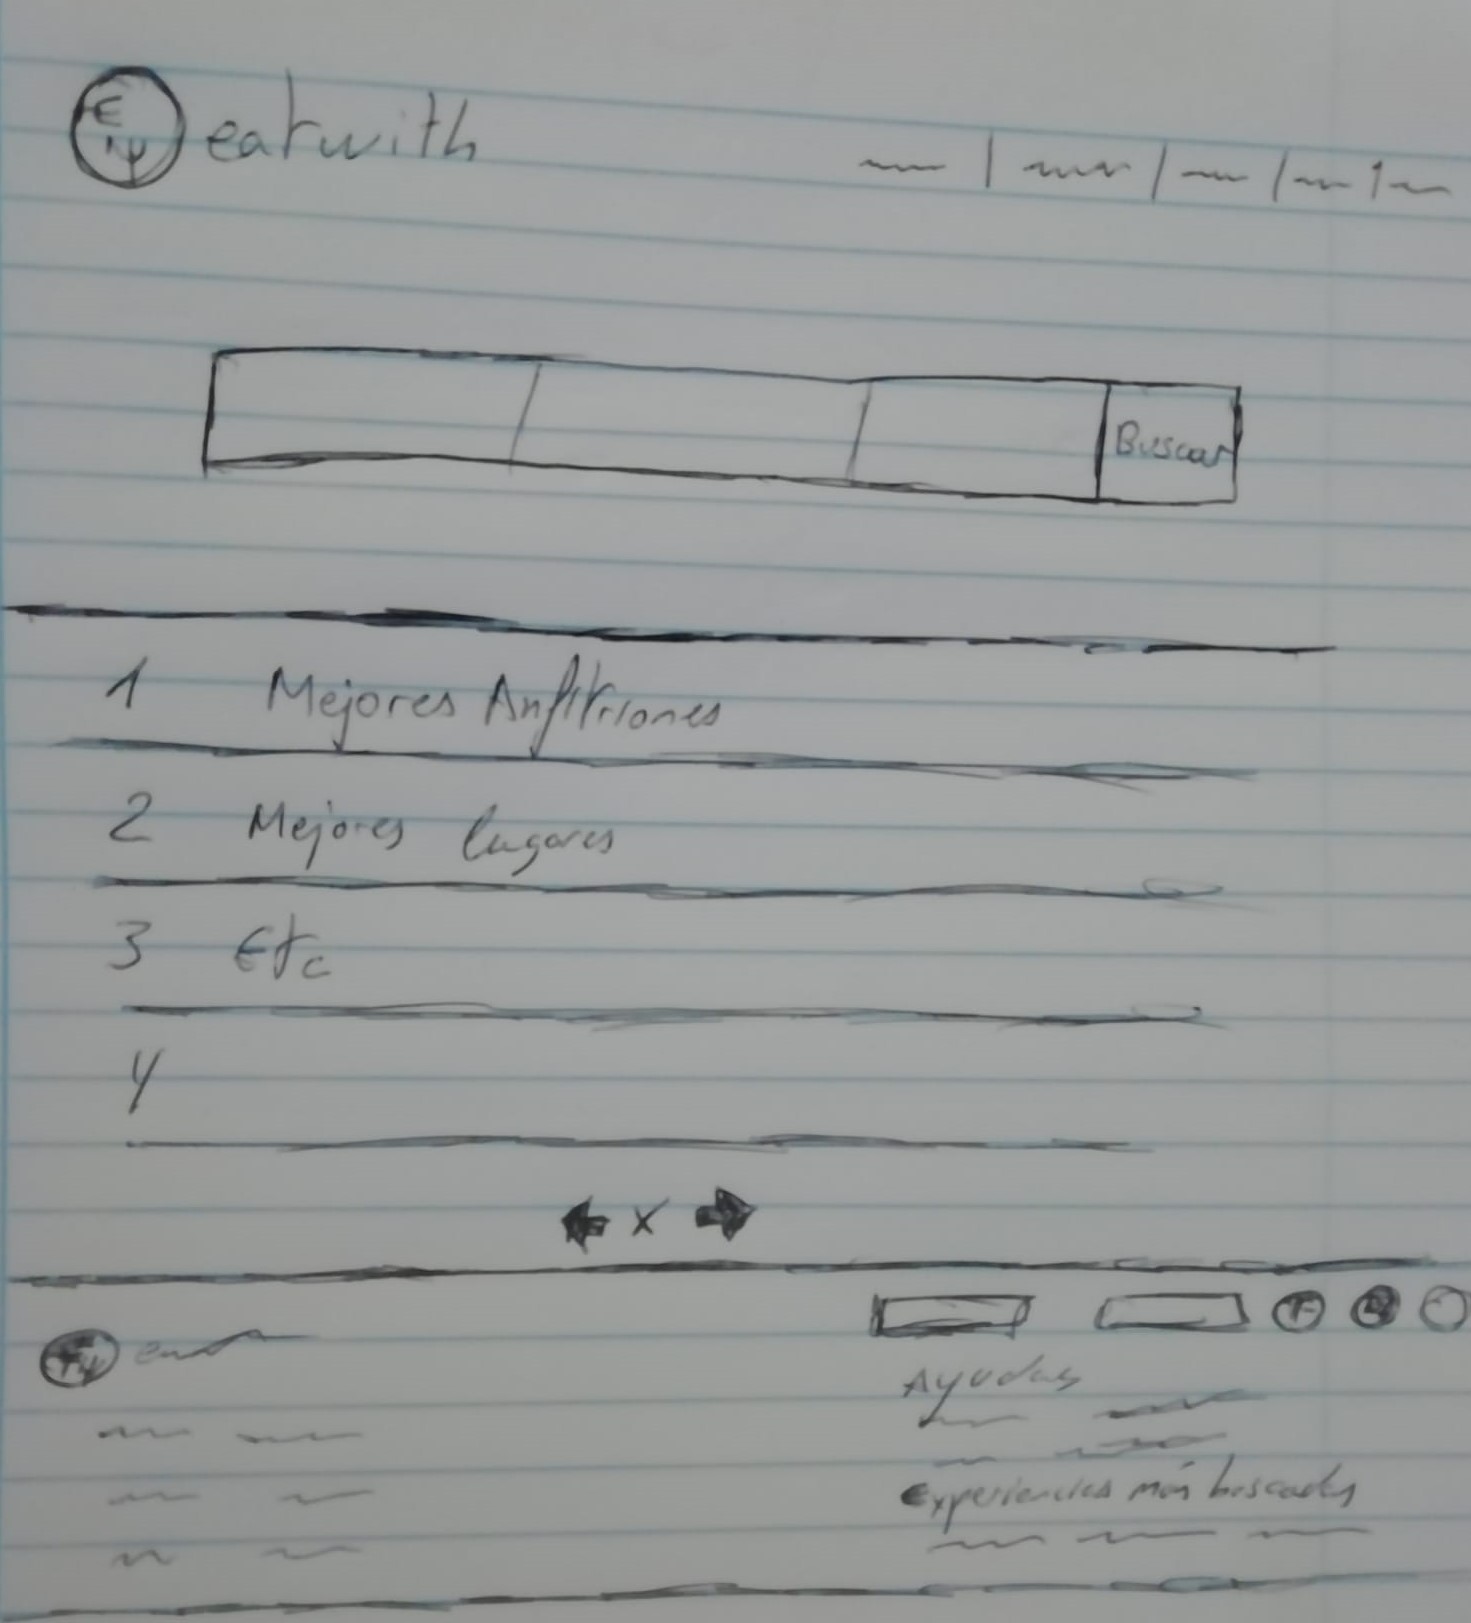 eatwith
Buscar
1 Mejores Anfitriones
2 Mejores lugares
3 Etc
4
x
Ayudas
Experiencias más buscadas